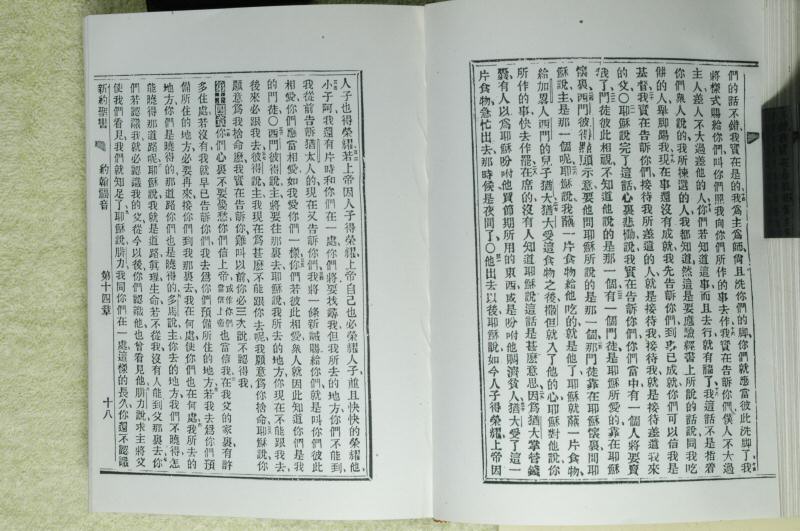 們的話不錯我實在是的我爲主爲師尙且洗你們的脚你們就應當彼此洗脚了我
將樣式賜給你們叫你們照我向你們所作的事去作我實在告訴你們僕人不大過
主人差人不大過差他的人你們若知道這事而且去行就有福了我這話不是指着
你們衆人說的我所揀選的人我都知道然這是要應驗經書上所說的話說同我吃
餅的人舉脚踢我現在事還沒有成就我先告訴你們到事已成就你們可以信我是
基督我實在告訴你們接待我所差遣的人就是接待我接待我就是接待差遣我來
的父〇耶穌說完了這話心裏悲慟說我實在告訴你們你們當中有一個人將要賣
我了門徒彼此相視不知道他說的是那一個有一個門徒是耶穌所愛的靠在耶穌
懷裏西門彼得點頭示意要他問耶穌所說的是那一個那門徒靠在耶穌懷裏問耶
穌說主是那一個呢耶穌說我蘸一片食物給他吃的就是他了耶穌就蘸一片食物
給加畧人西門的兒子猶大猶大受這食物之後撒但就入了他的心耶穌對他說你
所作的事快去作罷在席的沒有人知道耶穌說這話是甚麽意思因爲猶大掌管錢
囊有人以爲耶穌吩咐他買節期所用的東西或是吩咐他賙濟貧人猶大受了這一
片食物急忙出去那時候是夜間了〇他出去以後耶穌說如今人子得榮耀上帝因
人子也得榮耀若上帝因人子得榮耀上帝自己也必榮耀人子並且快快的榮耀他
小子阿我還有片時和你們在一處你們將要找尋我但我所去的地方你們不能到
我從前告訴猶太人的現在又告訴你們我將一條新誡賜給你們就是叫你們彼此
相愛你們應當相愛如我愛你們一樣你們若彼此相愛衆人就因此知道你們是我
的門徒〇西門彼得說主將要往那裏去耶穌說我所去的地方你現在不能跟我去
後來必跟我去彼得說主我現在爲甚麽不能跟你去呢我願意爲你捨命耶穌說你
願意爲我捨命麽我實在告訴你雞叫以前你必三次說不認得我
第十四章你們心裏不要憂愁你們信上帝或作你們當信上帝也當信我在我父的家裏有許
多住處若沒有我就早已告訴你們我去爲你們預備所住的地方若我去爲你們預
備所住的地方必要再來接你們到我那裏去我在何處使你們也在何處我所去的
地方你們是曉得的那道路你們也是曉得的多馬說主你去的地方我們不曉得怎
能曉得那道路呢耶穌說我就是道路眞理生命若不從我沒有人能到父那裏去你
們若認識我就必認識我的父從今以後你們認識他也曾看見他腓力說求主將父
使我們看見我們就知足了耶穌說腓力我同你們在一處這樣的長久你還不認識
新約聖書 約翰福音 第十四章 十八